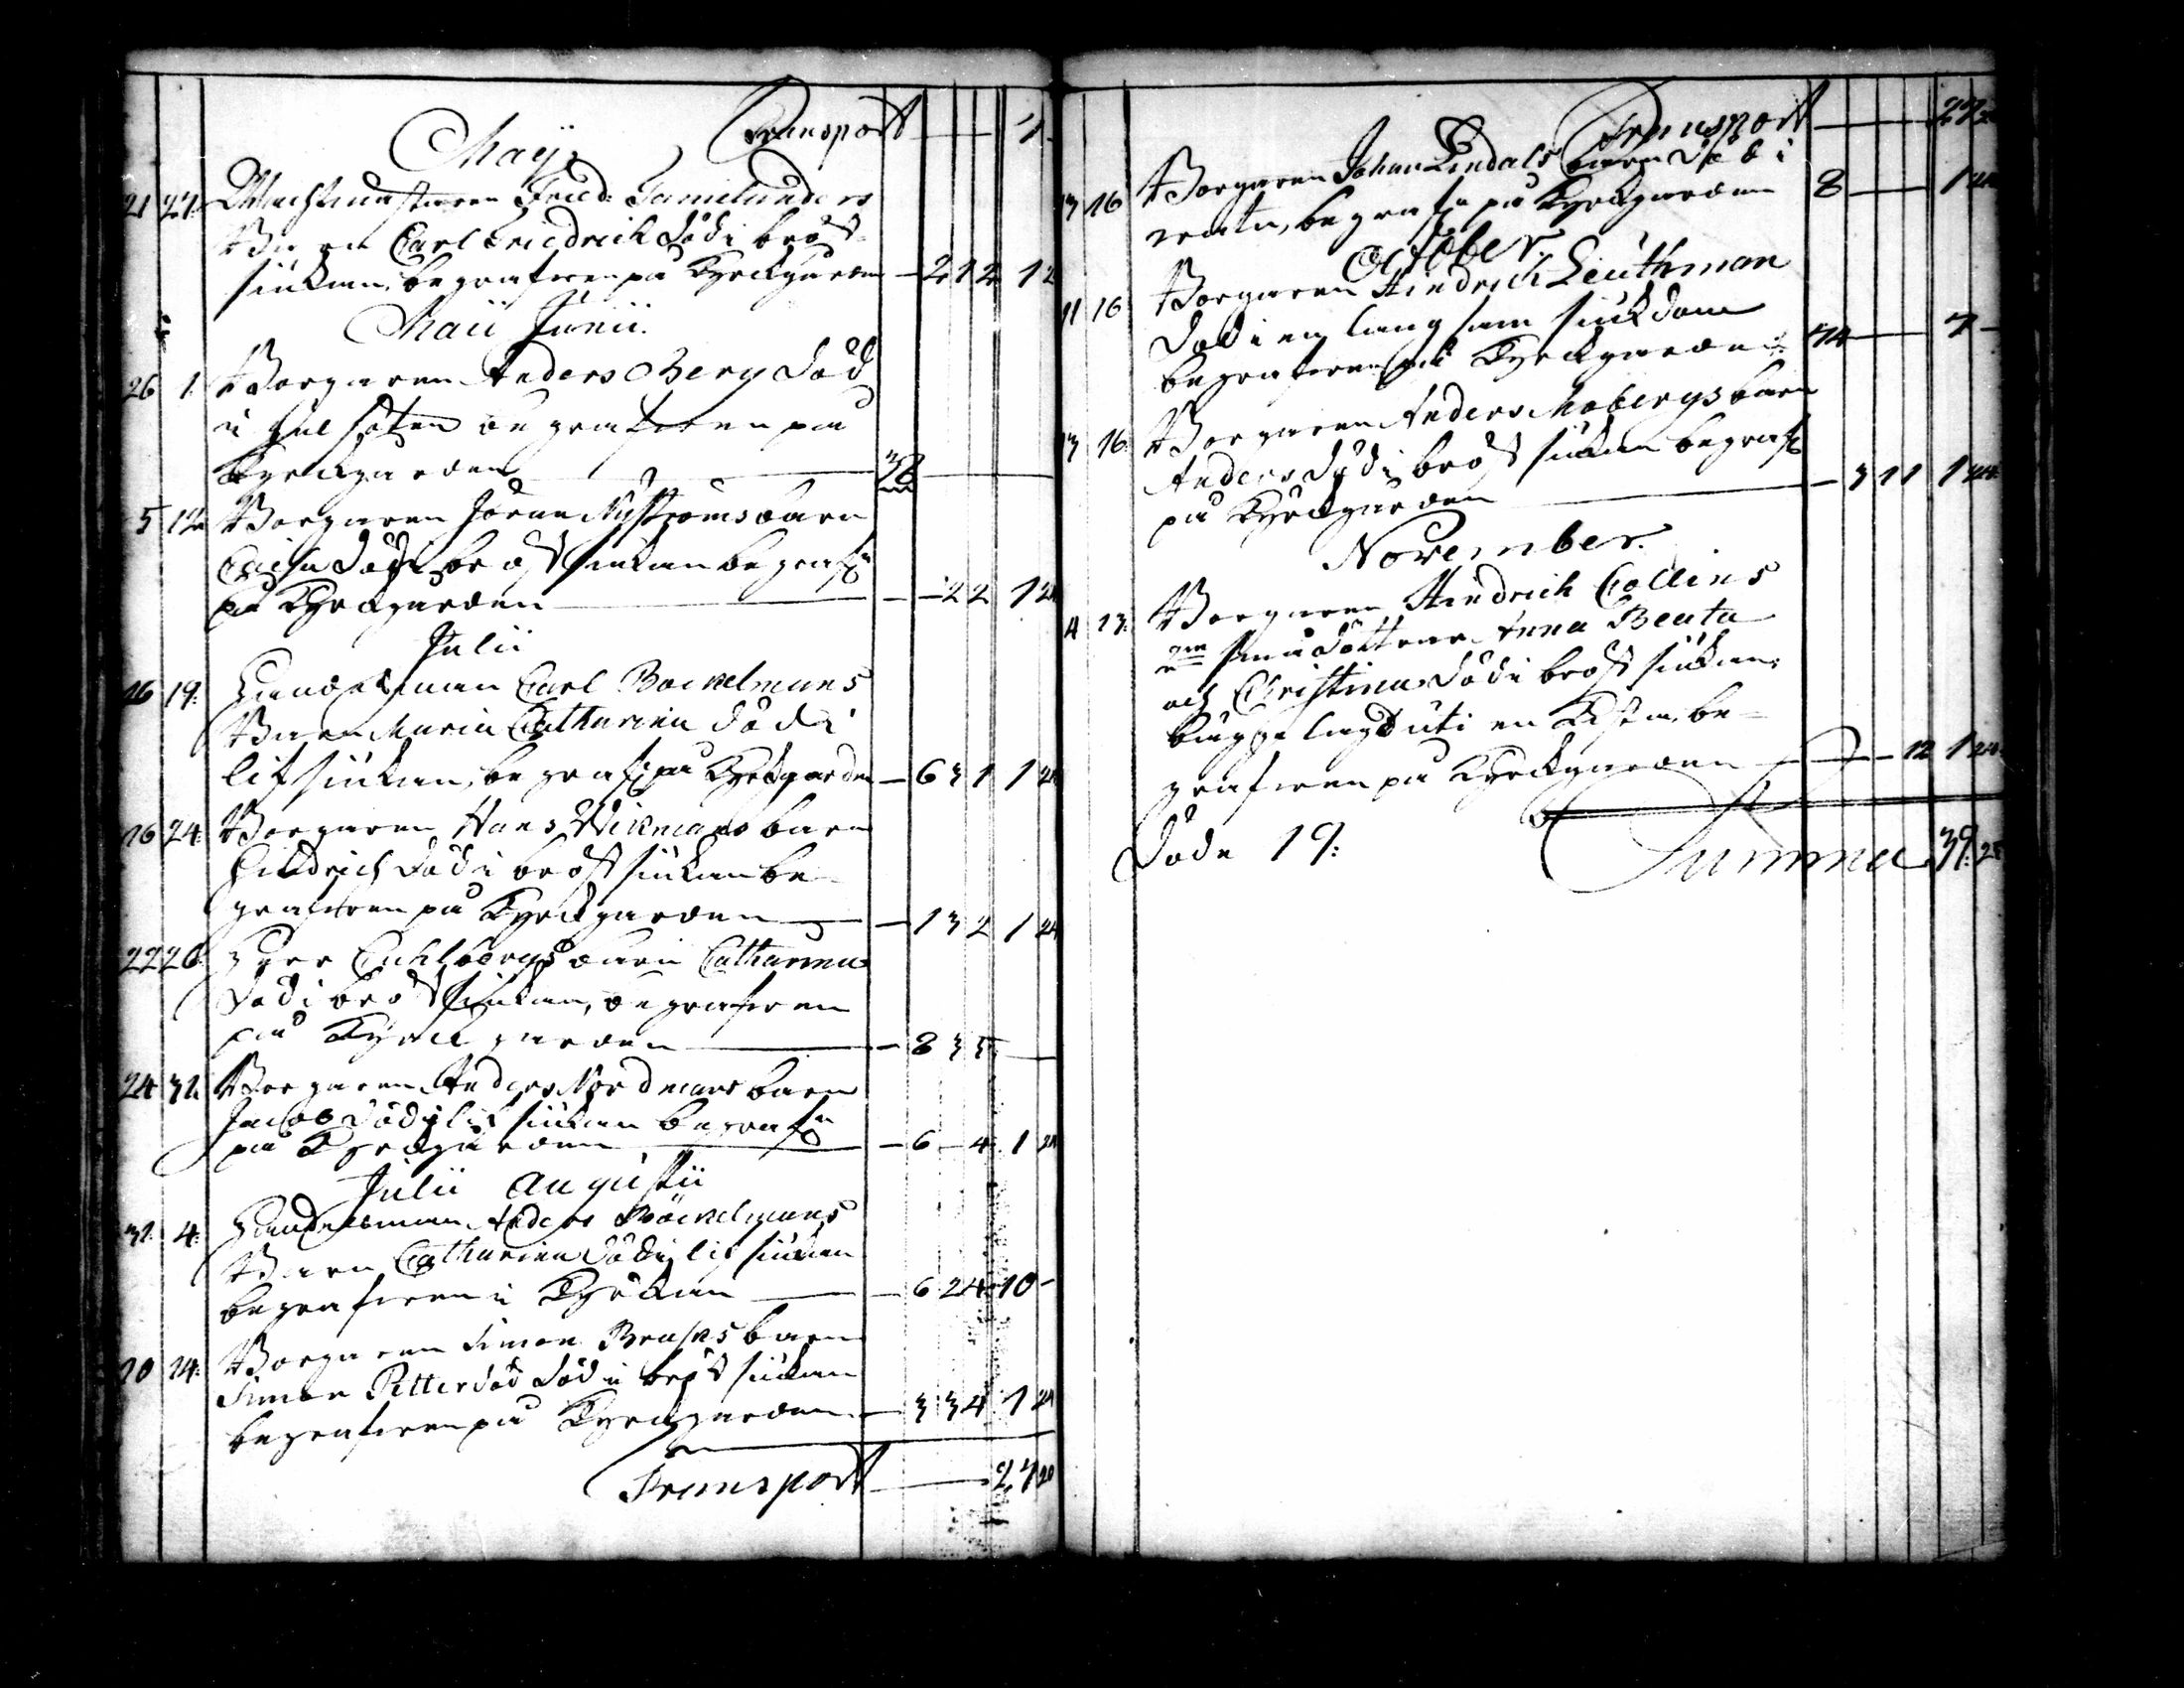 Transport — 7 -
Maij
21 27. Wachtmästaren Fried: Tamelanders
Barn Carl Friedrich död i bröst-
siukan, begrafwen på Kyrckgården — 2 1 2 1 2
Maii Junii.
26 1. Borgaren Anders Berg död
i gulsoten begrafwen på
Kyrckgården — 38 —
5 12 Borgaren Jöran Nyströms barn
Caisa död i bröstsiukan begrafn
på Kyrckgården — - 2 2 1 24
Julii
16 19: Handelsman Carl Böckelmans
Barn Maria Catharina död i
lifsiukan, begrafn på Kyrckgården — 6 3 1 1 24
16 24: Borgaren Hans Wikmans barn
Hindrich död i bröstsiukan be-
grafwen på Kyrckgården — 1 3 2 1 24
22 26 barn Catharina
död i bröstsiukan, begrafwen
på Kyrckgården — 8 3 5 —
24 31. Borgaren Anders Nordmans barn
Jacob död i lifsiukan begrafn
på Kyrckgården — 6 - 4 1 24
Julii Augustii
31. 4: Handelsman Anders Böckelmans
Barn Catharina död i lifsiukan
begrafwen i Kyrckan — 6 2 4 10 -
10 14: Borgaren Simon Brasks barn
Simon Petter död död i bröstsiukan
begrafwen på Kyrckgården — 3 3 4 1 24
Transport — 27 20
Transport — 27 20
13 16 Borgaren Johan Lindals barn död i
begrafn på Kyrckgården 8 — 1 24
October
11 16 Borgaren Hindrich Leuthman
död i en långsam siukdom
begrafwen på Kyrckgården 74 — 7 -
13 16: Borgaren Anders Mobergs barn
Anders död i bröstsiukan begrafn
på Kyrckgården — 3 11 1 24
November.
4 13: Borgaren Hindrich Collins
små döttrar Anna Beata
och Christina död i bröstsiukan,
bägge lagd uti en Kista, be-
grafwen på Kyrckgården — - 12 1 24
Döde 19: Summa 39: 2